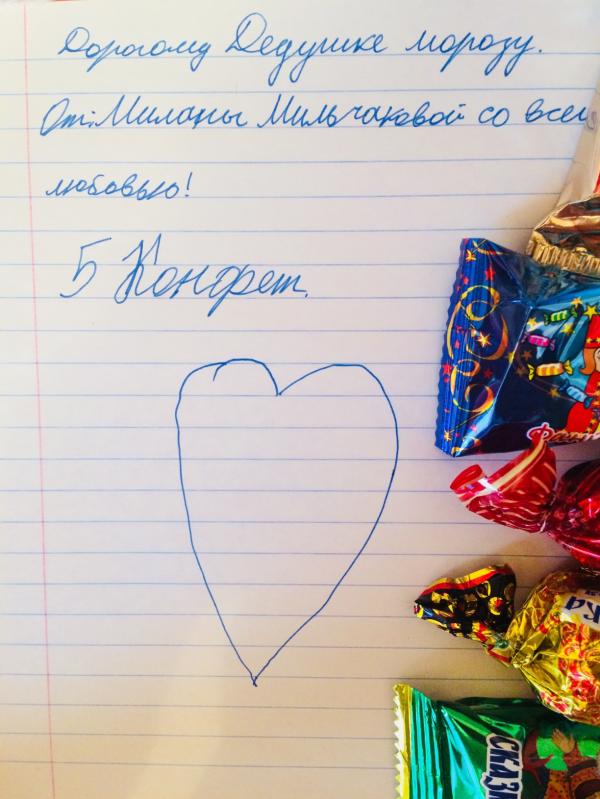 Дорогому Дедушке морозу.
От: Миланы Мильчаковой со всей
любовью!
5 Конфет.
СКАЗ